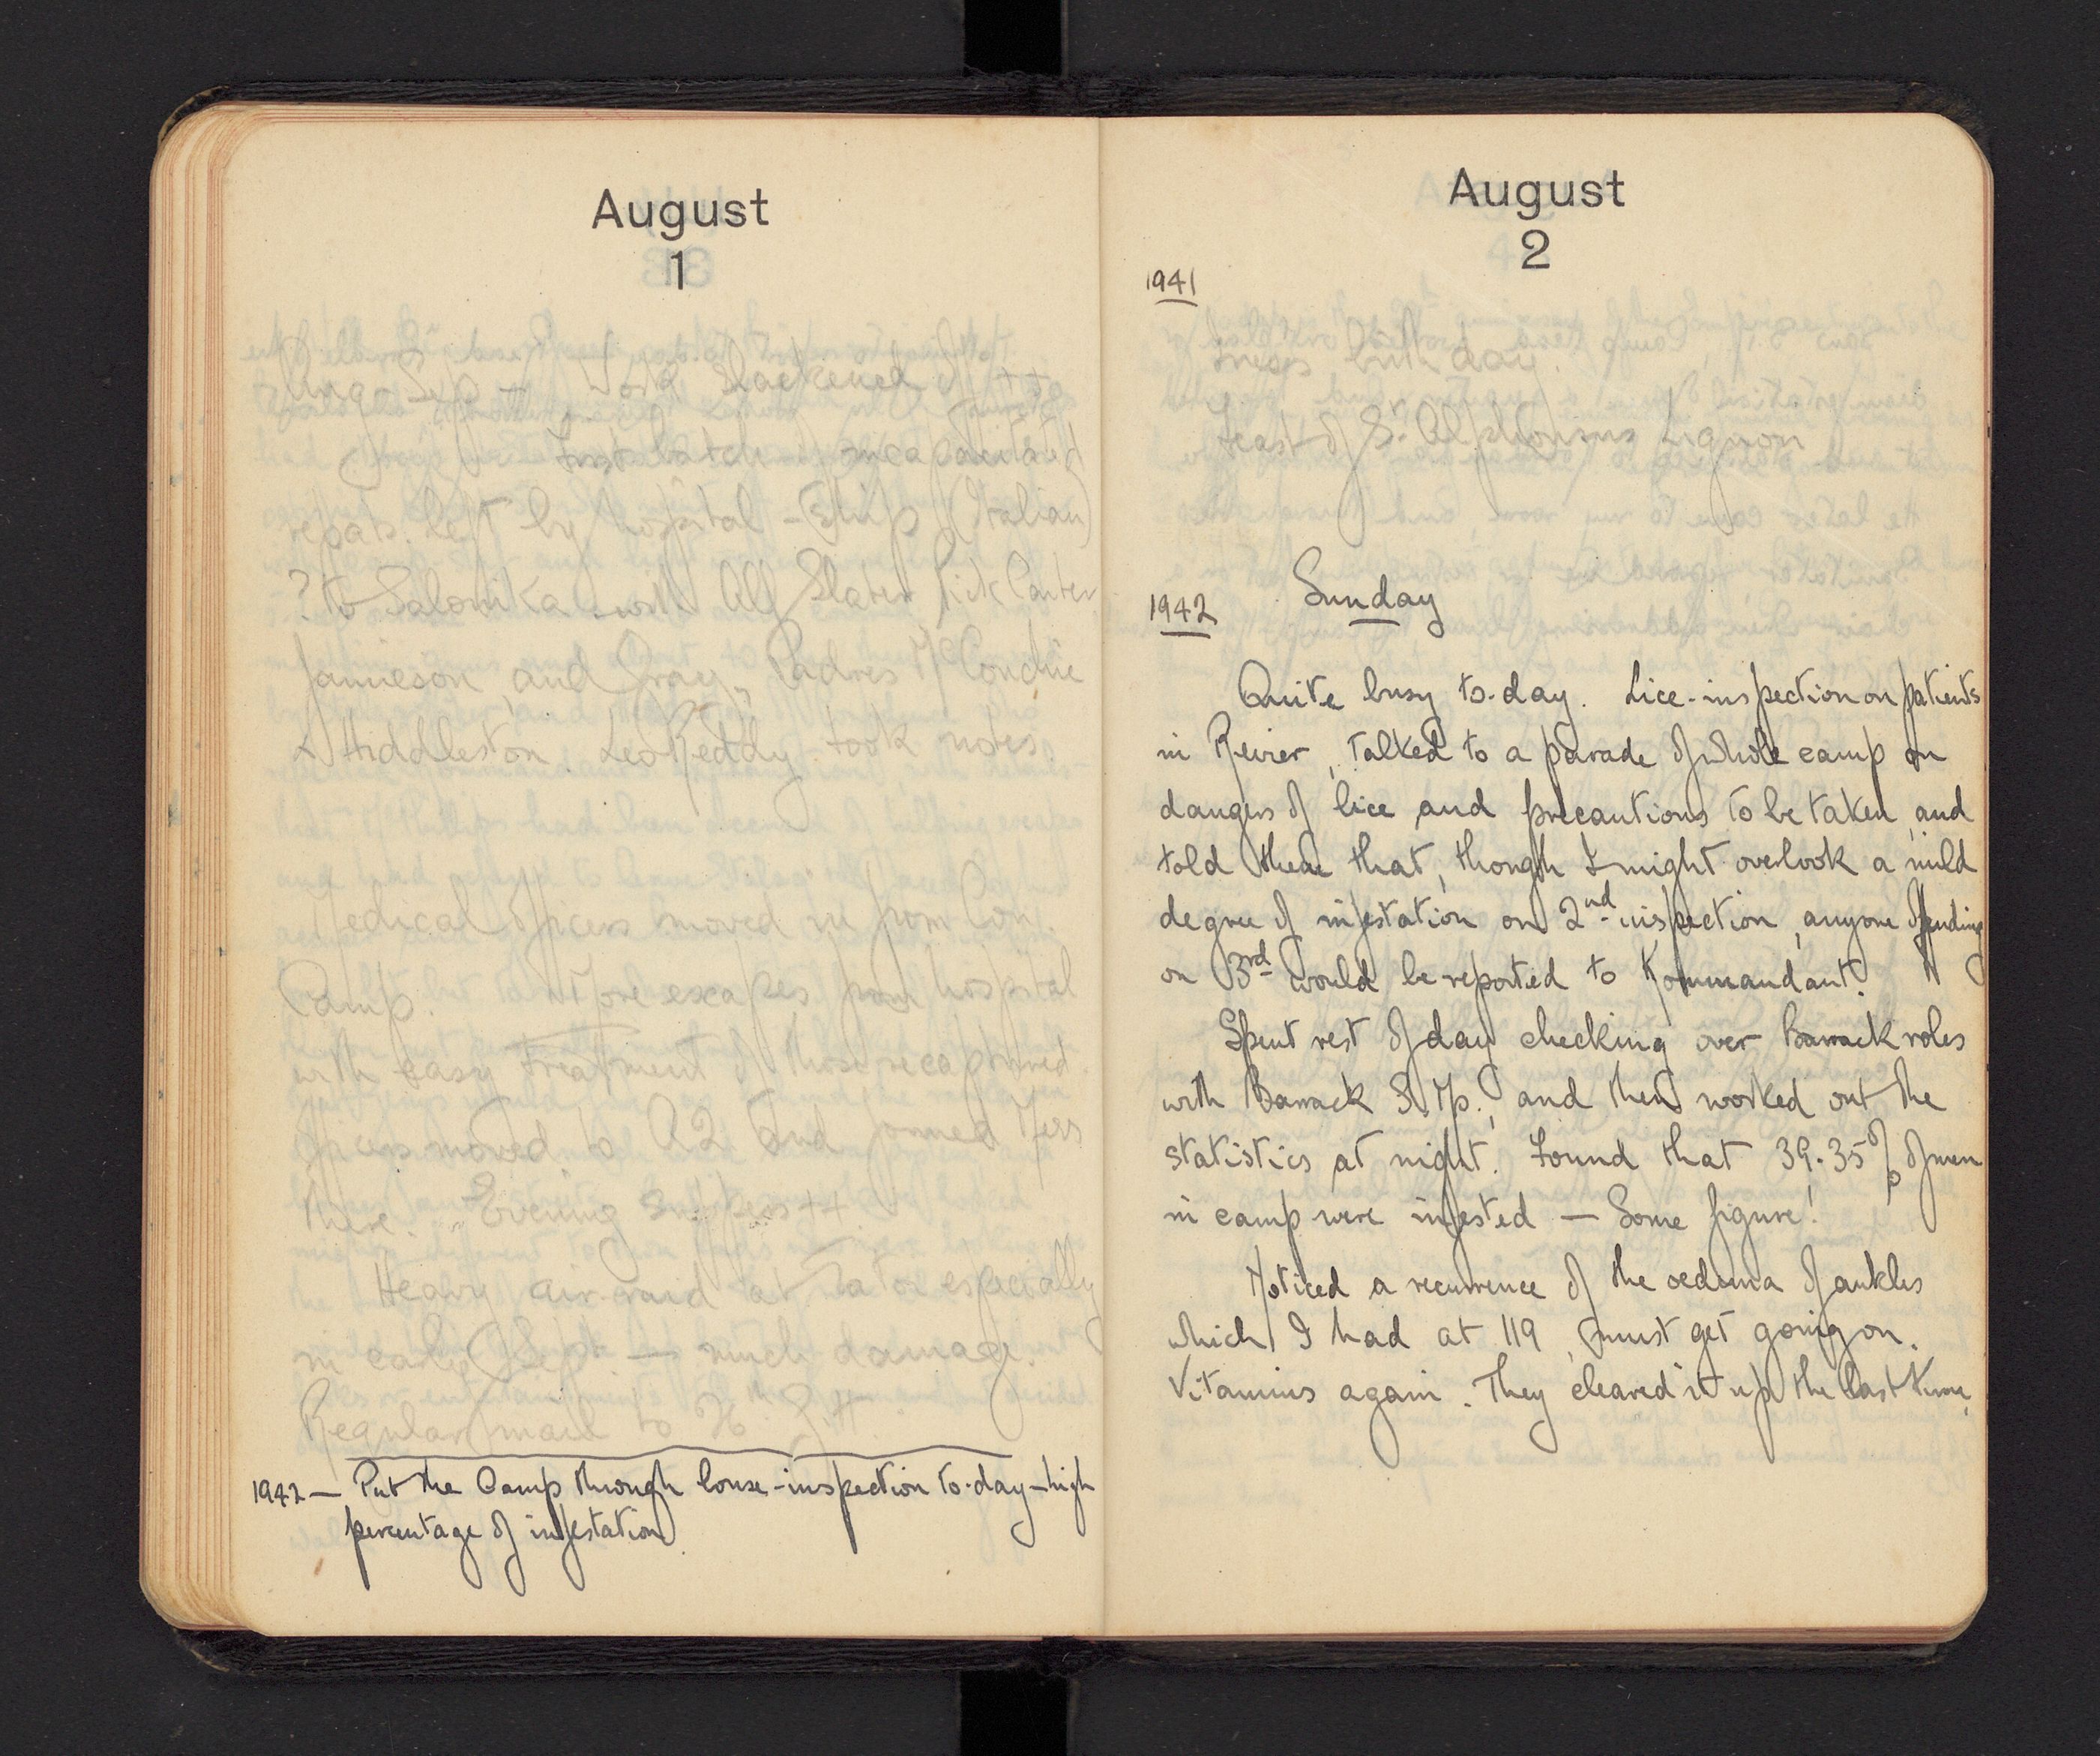 August
1
Aug-Sep – Work slackened off ++
First batch incapacitated
repats. left by hospital-ship (Italian)
? to Salonika with Alf Slater Dick Carter
Jamieson and Gray, Padres McConchie
& Hiddleston. Leo Reddy took notes.
Medical Officers moved in from Con.
Camp. More escapes from hospital
with easy treatment of those recaptured.
Officers moved to A2 and joined Mess
there. Evening suppers ++.
Heavy air-raid at Tatoi especially
in early Sept – much damage.
Regular mail to
1942 – Put the Camp through louse-inspection to-day – high
percentage of infestation
August
2
1941
birthday.
Feast of St. Alphonsus Liguori
1942 Sunday
Quite busy to-day. Lice-inspection on patients
in Revier, talked to a parade of whole camp on
dangers of lice and precautions to be taken, and
told them that, though I might overlook a mild
degree of infestation on 2nd inspection, anyone offending
on 3rd would be reported to Kommandant.
Spent rest of day checking over Barrack roles
with Barrack S.M.s, and then worked out the
statistics at night. Found that 39.35% of men
in camp were infested – Some figure!
Noticed a recurrence of the oedema of ankles
which I had at 119, must get going on.
Vitamins again. They cleared it up the last time.